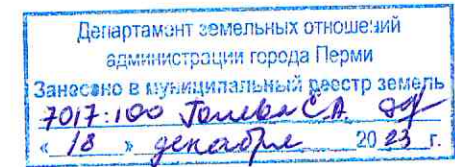 Департамент земельных отношений
администрации города Перми
Занесено в муниципальный реестр земель
7017:100 Голева С.А.
« 18 » декабря 20 23 г.